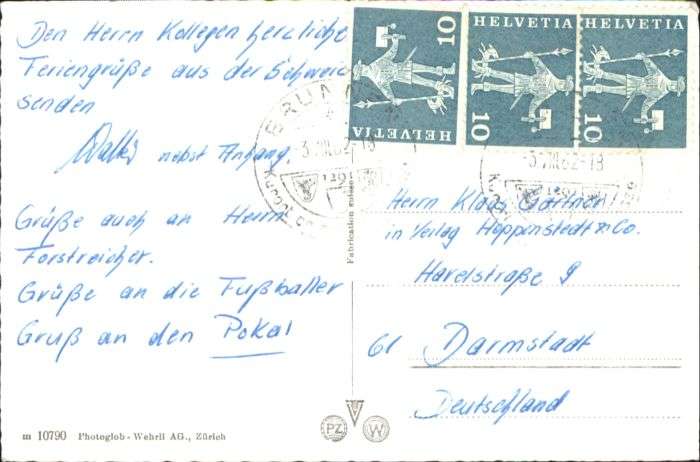 Den Herrn Kollegen herzliche
Feriengrüße aus der Schweiz
senden
nebst Anhang.
Grüße auch an Herrn
Forstreicher.
Grüße an die Fußballer
Gruß an den Pokal
HELVETIA
10
HELVETIA
10
HELVETIA
10
BRUNN
1291
1291
Fabrication suisse
Herrn Klaus Gärtner
in Verlag Hoppenstedt & Co.
Havelstraße 9
61 Darmstadt
Deutschland
m 10790 Photoglob-Wehrli AG., Zürich
PZ
W